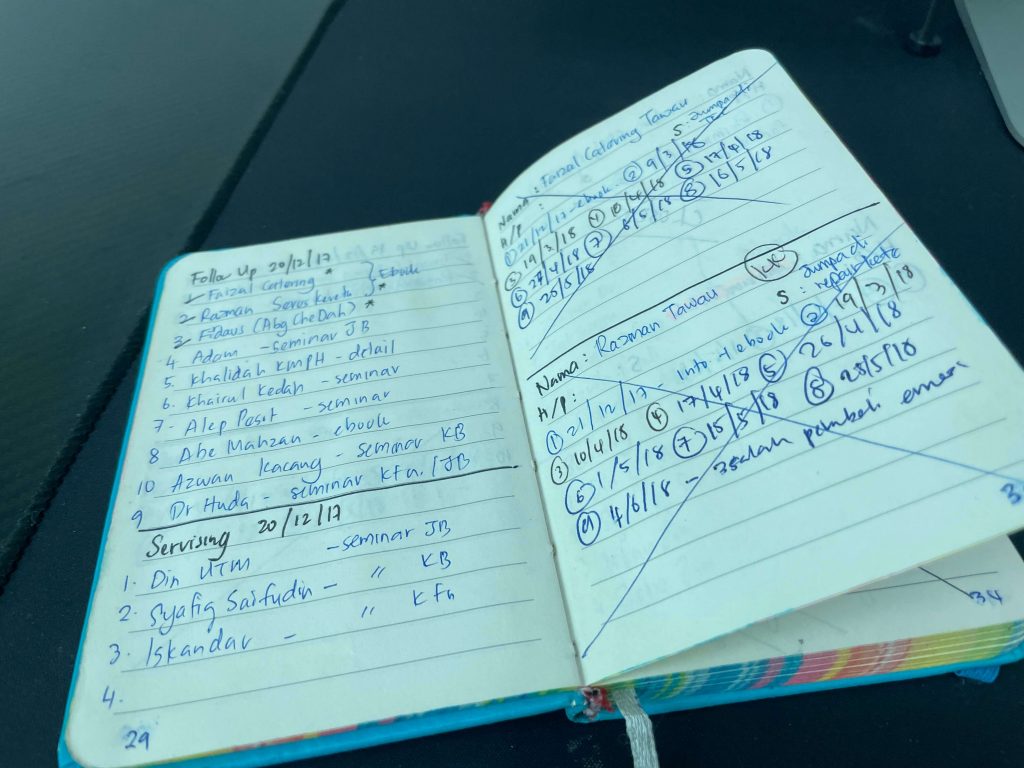 Follow Up 20/12/17
1 Faizal Catering * } Ebook
2 Razman Servis Kereta *
3 Fidaus (Abg CheDah) *
4 Adam - seminar JB
5. Khalidah KMPH - detail
6. Khairul Kedah - seminar
7- Alep Pasit - seminar
8 Abe Mahzan - ebook
10 Azwan Kacang - seminar KB
9 Dr Huda - seminar Kfn. / JB
Servising 20/12/17
1. Din UTM - seminar JB
2. Syafig Saifudin - " KB
3. Iskandar - " Kfn
4.
29
Nama : Faizal Catering Tawau
H/P : S : Jumpa di
① 21/12/17 - ebook. ② 9/3/18
③ 19/3/18 ④ 10/4/18 ⑤ 17/4/18
⑥ 27/4/18 ⑦ 8/5/18 ⑧ 16/5/18
⑨ 25/5/18
Nama : Razman Tawau
H/P : S : Jumpa di
repair keta
① 21/12/17 - Info + ebook ② 19/3/18
③ 10/4/18 ④ 17/4/18 ⑤ 26/4/18
⑥ 1/5/18 ⑦ 15/5/18 ⑧ 25/5/18
⑨ 4/6/18 -
3
34